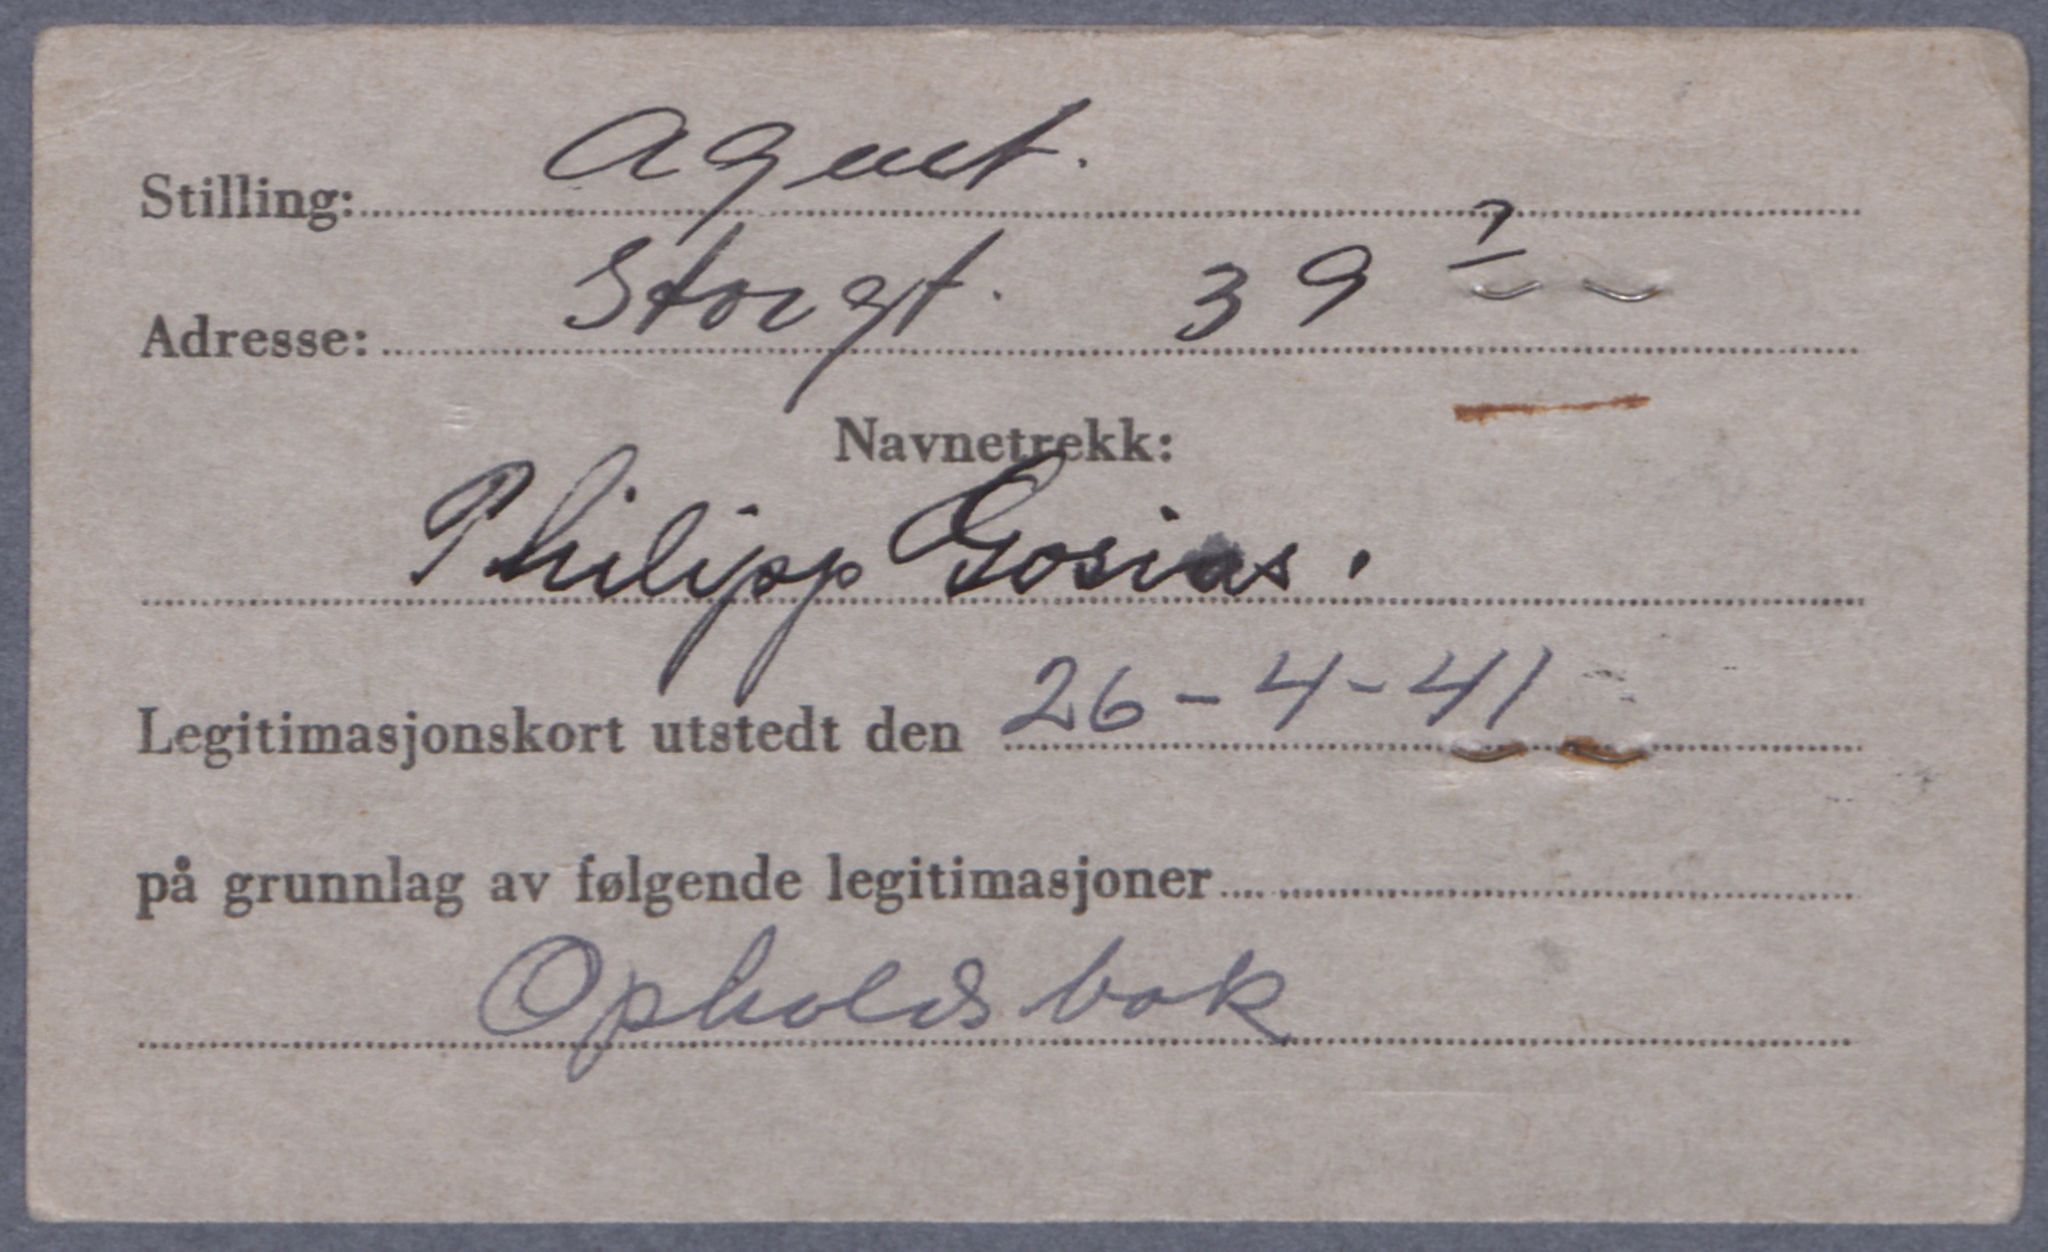 Stilling: Agent.
Adresse: Storgt. 39 7
Navnetrekk:
Philipp Gosias.
Legitimasjonskort utstedt den 26-4-41
på grunnlag av følgende legitimasjoner
Opholdsbok